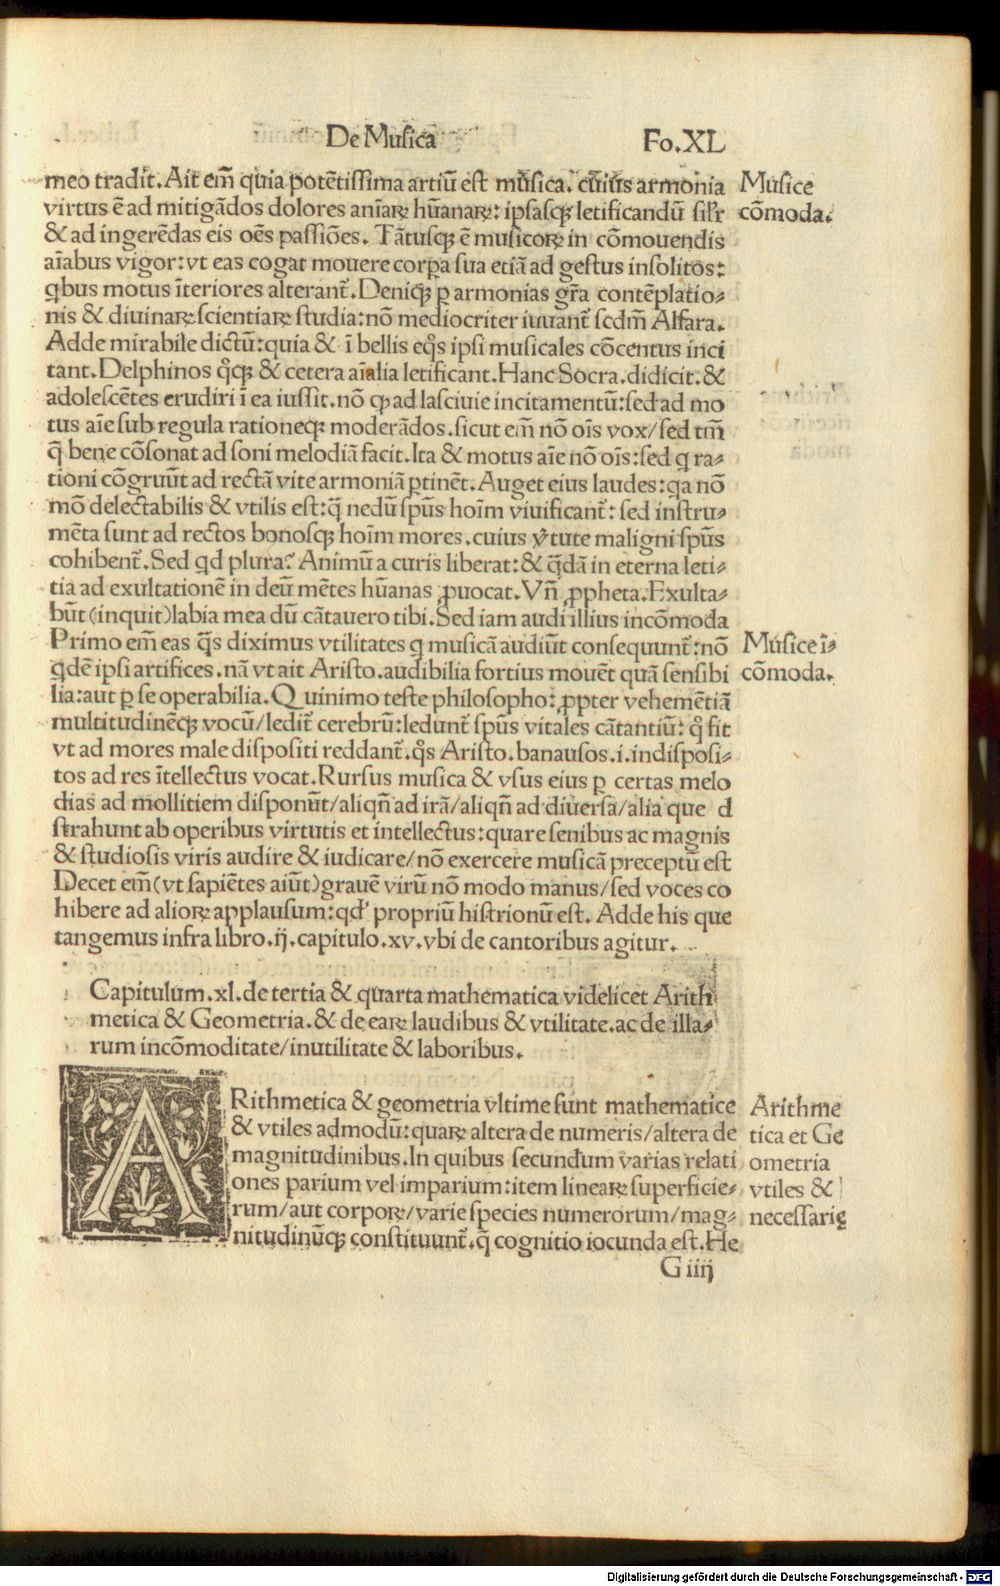 De Musica Fo.XL
meo tradit. Ait em̄ quia potētissima artiū est musica. cuius armonia
virtus ē ad mitigādos dolores aīaꝝ hūanaꝝ: ipsasqꝫ letificandū silr̄
& ad ingerēdas eis oēs passiōes. Tātusqꝫ ē musicoꝝ in cōmouendis
aīabus vigor: vt eas cogat mouere corpa sua etiā ad gestus insolitos:
qbus motus īteriores alterant̄. Deniqꝫ ꝑ armonias gr̄a contēplatio⸗
nis & diuinaꝝ scientiaꝝ studia: nō mediocriter iuuant̄ scdm̄ Alfara.
Adde mirabile dictū: quia & ī bellis eq̄s ipsi musicales cōcentus inci
tant. Delphinos q̊qꝫ & cetera aīalia letificant. Hanc Socra. didicit. &
adolescētes erudiri ī ea iussit. nō ꝙ ad lasciuie incitamentū: sed ad mo
tus aīe sub regula rationeqꝫ moderādos. sicut em̄ nō oīs vox/sed tm̄
q̄ bene cōsonat ad soni melodiā facit. Ita & motus aīe nō oīs: sed q ra⸗
tioni cōgruūt ad rectā vite armoniā ꝑtinēt. Auget eius laudes: qa nō
mō delectabilis & vtilis est: q̄ nedū spūs hoīm viuificant̄: sed instru⸗
mēta sunt ad rectos bonosqꝫ hoīm mores. cuius v̓tute maligni spūs
cohibent̄. Sed qd plura? Animū a curis liberat: & q̄dā in eterna leti⸗
tia ad exultationē in deū mētes hūanas ꝓuocat. Vn̄ ꝓpheta. Exulta⸗
būt (inquit) labia mea dū cātauero tibi. Sed iam audi illius incōmoda
Primo em̄ eas q̄s diximus vtilitates q musicā audiūt consequunt̄: nō
qdē ipsi artifices. nā vt ait Aristo. audibilia fortius mouēt quā sensibi
lia: aut ꝑ se operabilia. Quinimo teste philosopho: ꝓpter vehemētiā
multitudinēqꝫ vocū/ledit̄ cerebrū: ledunt̄ spūs vitales cātantiū: q̊ fit
vt ad mores male dispositi reddant̄. q̊s Aristo. banausos .i. indisposi⸗
tos ad res ītellectus vocat. Rursus musica & vsus eius ꝑ certas melo
dias ad mollitiem disponūt/aliqn̄ ad irā/aliqn̄ ad diuersa/alia que d
strahunt ab operibus virtutis et intellectus: quare senibus ac magnis
& studiosis viris audire & iudicare/nō exercere musicā preceptū est
Decet em̄ (vt sapiētes aiūt) grauē virū nō modo manus/sed voces co
hibere ad alioꝝ applausum: qd̓ propriū histrionū est. Adde his que
tangemus infra libro .ij. capitulo .xv. vbi de cantoribus agitur.
Musice
cōmoda.
Musice ī⸗
cōmoda.
Capitulum .xl. de tertia & quarta mathematica videlicet Arith
metica & Geometria. & de eaꝝ laudibus & vtilitate. ac de illa⸗
rum incōmoditate/inutilitate & laboribus.
ARithmetica & geometria vltime sunt mathematice
& vtiles admodū: quaꝝ altera de numeris/altera de
magnitudinibus. In quibus secundum varias relati
ones parium vel imparium: item lineaꝝ superficie⸗
rum/aut corpoꝝ/varie species numerorum/mag⸗
nitudinūqꝫ constituunt̄. q̄ cognitio iocunda est. He
Arithme
tica et Ge
ometria
vtiles &
necessarię
G iiij
Digitalisierung gefördert durch die Deutsche Forschungsgemeinschaft - DFG